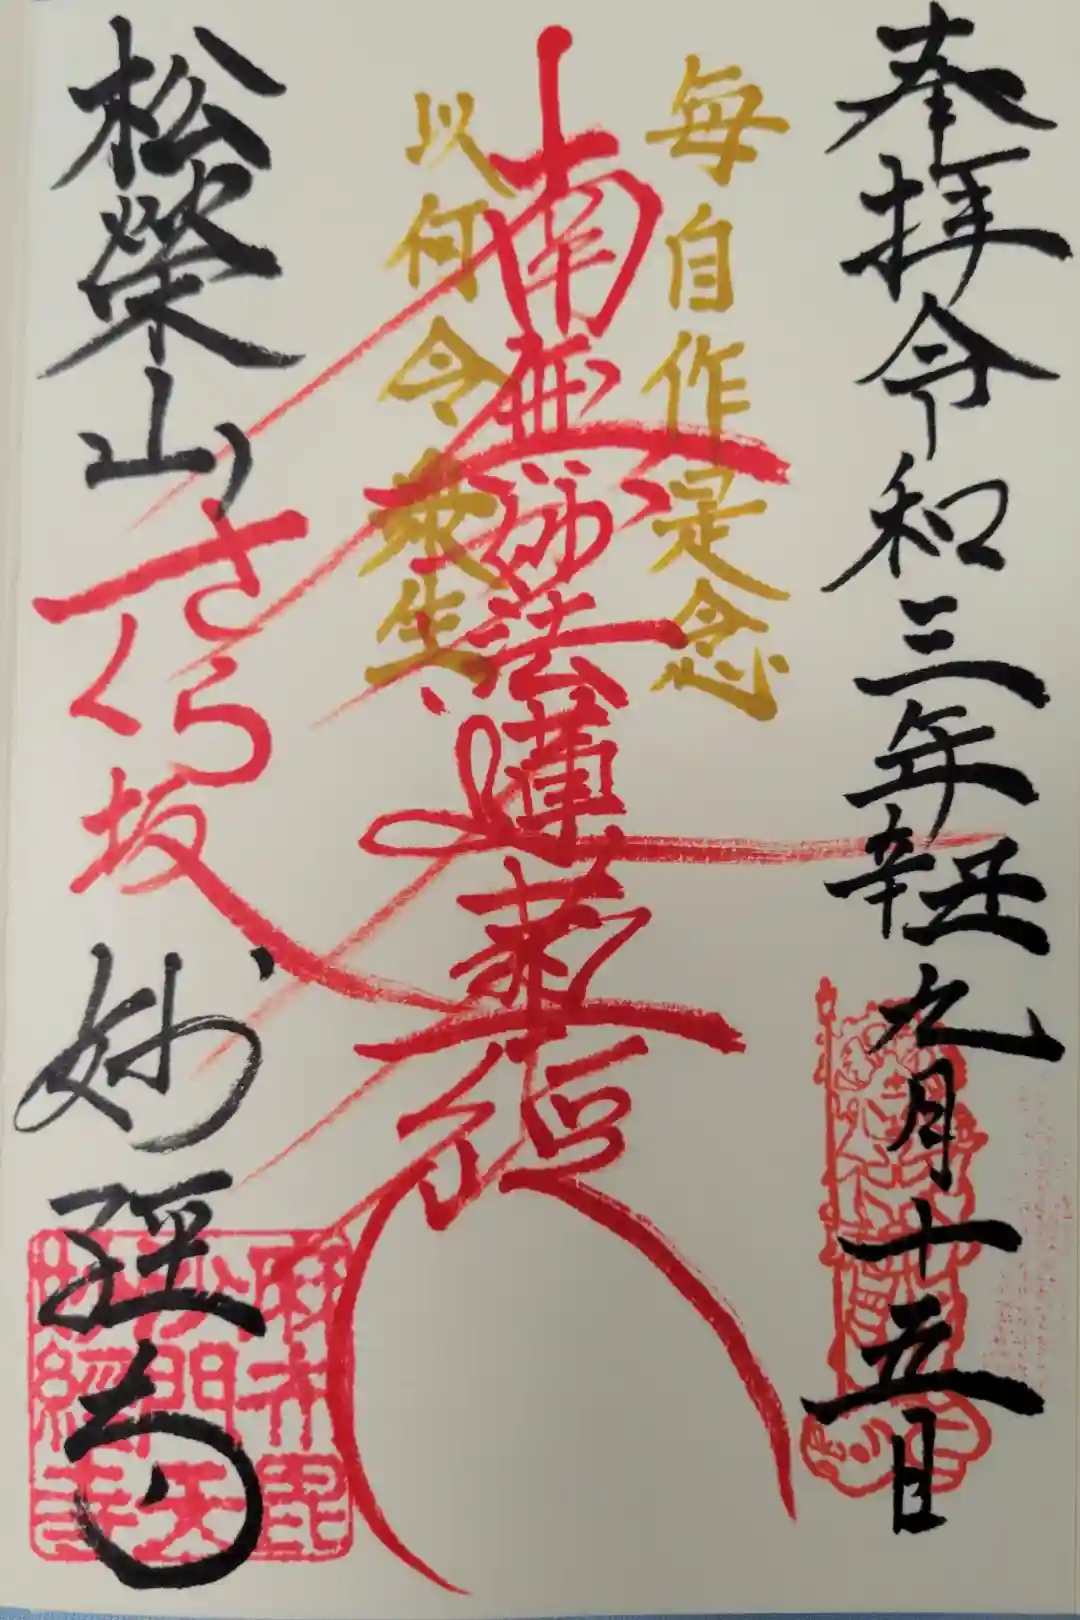 奉拝令和三年辛丑九月十五日
毎自作是念
南無妙法蓮華経
以何令衆生
松榮山
さくら坂
妙経寺
麻布毘
沙門天
妙經寺